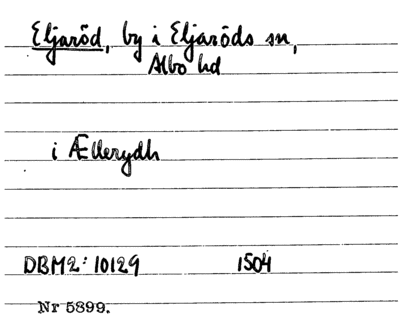 Eljaröd, by i Eljaröds sn,
Albo hd
i Ællerydh
DBM2: 10129 1504
Nr 5899.